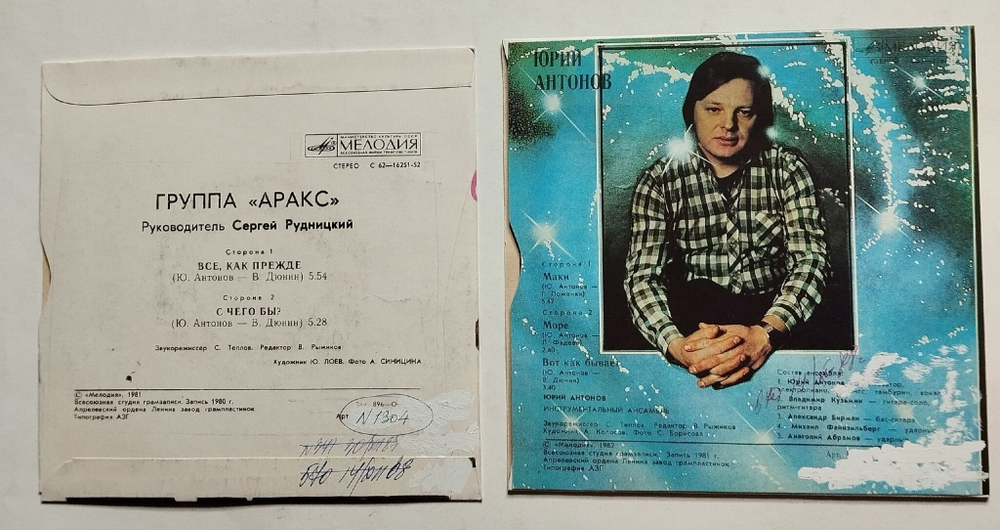 МИНИСТЕРСТВО КУЛЬТУРЫ СССР
МЕЛОДИЯ
ВСЕСОЮЗНАЯ ФИРМА ГРАМПЛАСТИНОК
СТЕРЕО С 62—16251-52
ГРУППА «АРАКС»
Руководитель Сергей Рудницкий
Сторона 1
ВСЕ, КАК ПРЕЖДЕ
(Ю. Антонов — В. Дюнин) 5.54
Сторона 2
С ЧЕГО БЫ?
(Ю. Антонов — В. Дюнин) 5.28
Звукорежиссер С. Теплов. Редактор В. Рыжиков
Художник Ю. ЛОЕВ. Фото А. СИНИЦИНА
© «Мелодия», 1981
Всесоюзная студия грамзаписи. Запись 1980 г.
Апрелевский ордена Ленина завод грампластинок
Типография АЗГ
896—0
Арт N 1304
ЮРИЙ
АНТОНОВ
МЕЛОДИЯ
Сторона 1
Маки
(Ю. Антонов —
Г. Поженян)
5.47
Сторона 2
Море
(Ю. Антонов —
Л. Фадеев)
2.40
Вот как бывает
(Ю. Антонов —
В. Дюнин)
3.40
ЮРИЙ АНТОНОВ
ИНСТРУМЕНТАЛЬНЫЙ АНСАМБЛЬ
Звукорежиссер С. Теплов. Редактор В. Рыжиков
Художник А. Колосов. Фото С. Борисова
© «Мелодия», 1982
Всесоюзная студия грамзаписи. Запись 1981 г.
Апрелевский ордена Ленина завод грампластинок
Типография АЗГ
Состав ансамбля:
1. Юрий Антонов
тамбурин, вокал
2. Владимир Кузьмин — гитара-соло,
ритм-гитара
3. Александр Бирман — бас-гитара
4. Михаил Файнзильберг — ударные
5. Анатолий Абрамов — ударные
Арт.